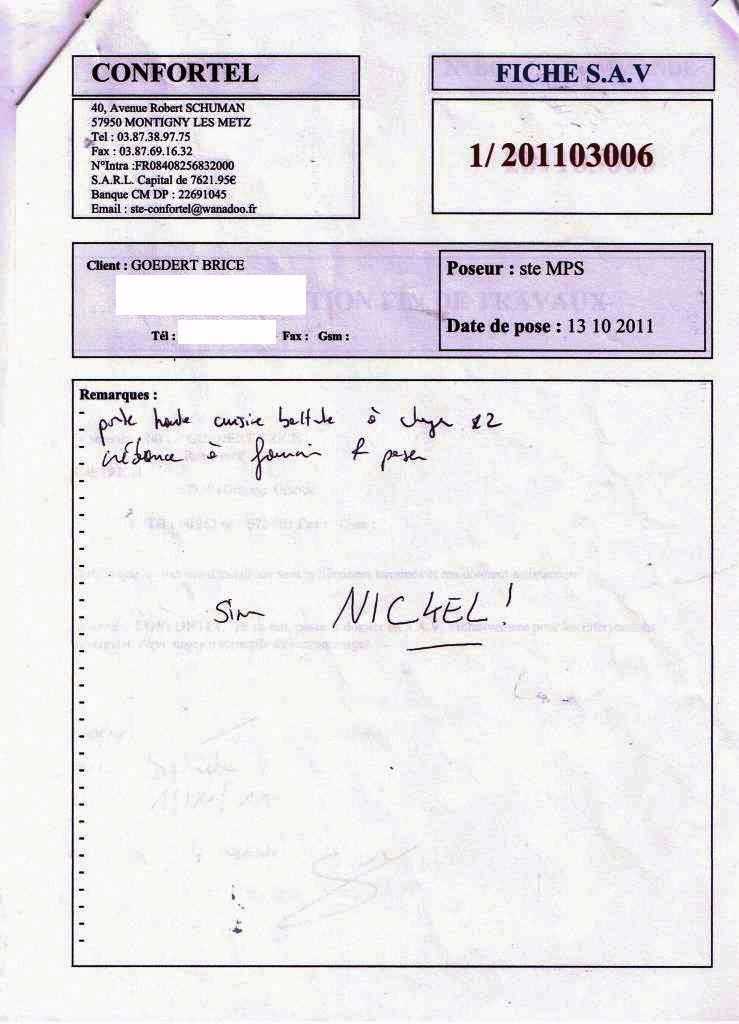 CONFORTEL
FICHE S.A.V
40, Avenue Robert SCHUMAN
57950 MONTIGNY LES METZ
Tel : 03.87.38.97.75
Fax : 03.87.69.16.32
N°Intra :FR08408256832000
S.A.R.L. Capital de 7621.95€
Banque CM DP : 22691045
Email : ste-confortel@wanadoo.fr
1/ 201103006
Client : GOEDERT BRICE
Tél : Fax : Gsm :
Poseur : ste MPS
Date de pose : 13 10 2011
Remarques :
porte haute cuisine à x2
crédence à fournir & poser
NICKEL !